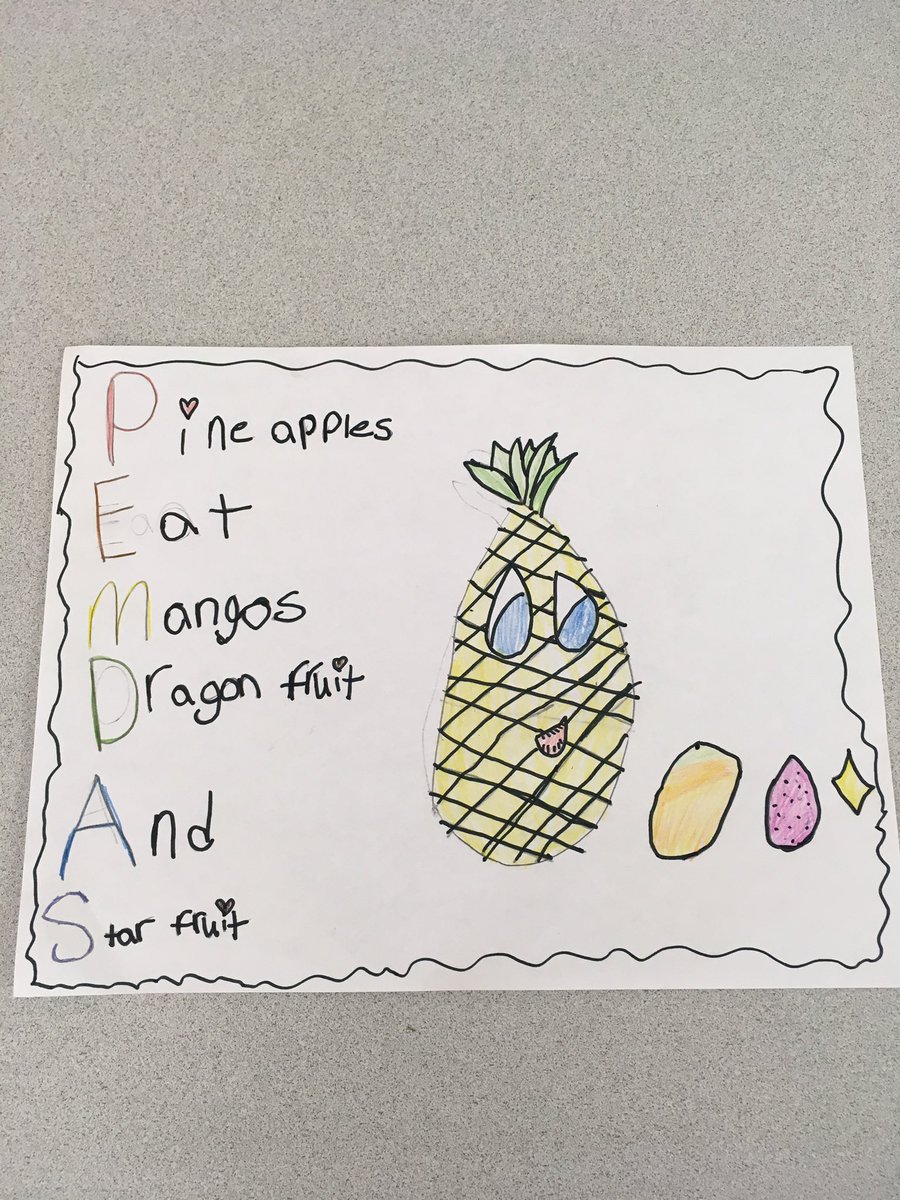 Pine apples
Eat
Mangos
Dragon fruit
And
Star fruit